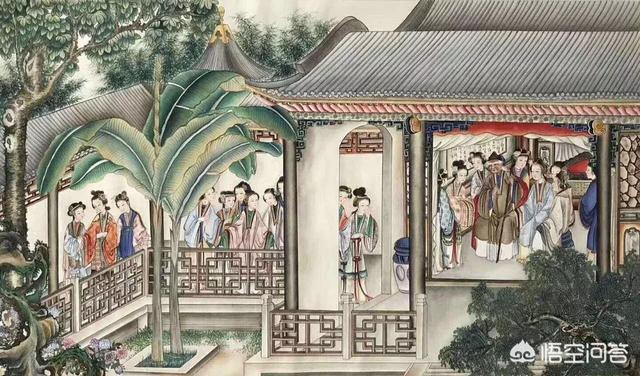 悟空问答